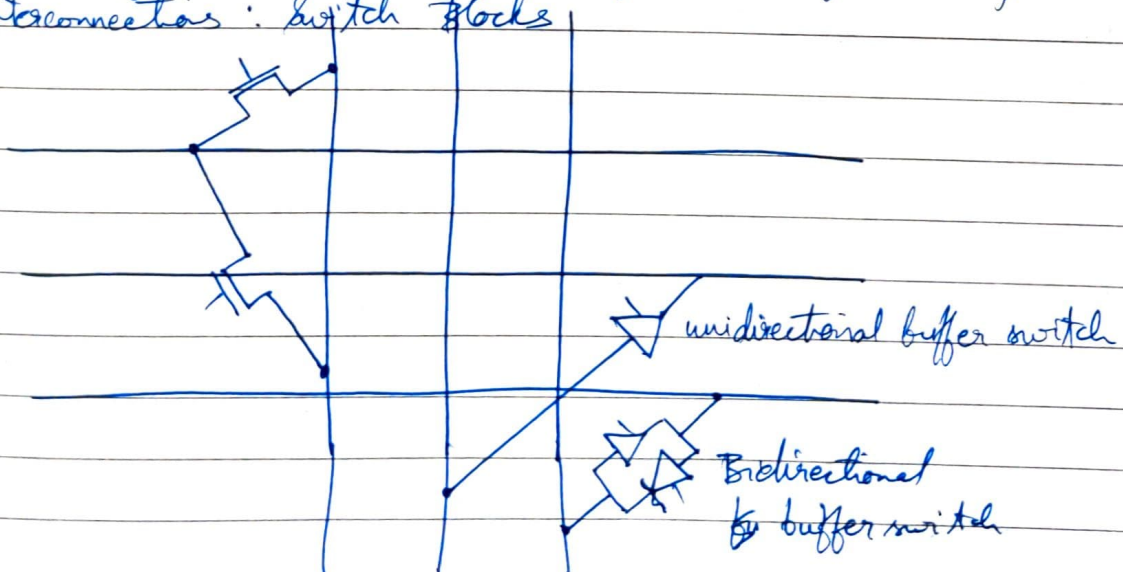 terconnections : Switch Blocks
unidirectional buffer switch
Bidirectional
buffer switch